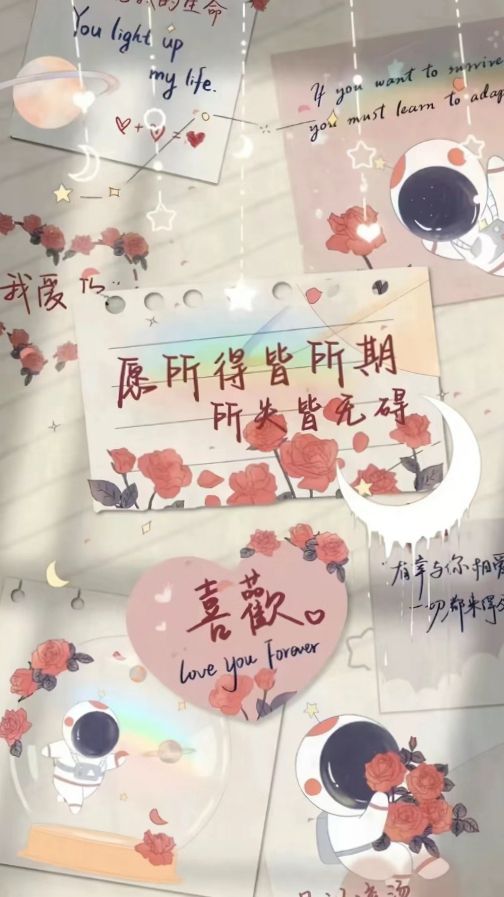 的生命
You light up
my life.
If you want to survive
you must learn to adap
我爱
愿所得皆所期
所失皆无碍
喜歡
Love You Forever
有幸与你相爱
一切都来得